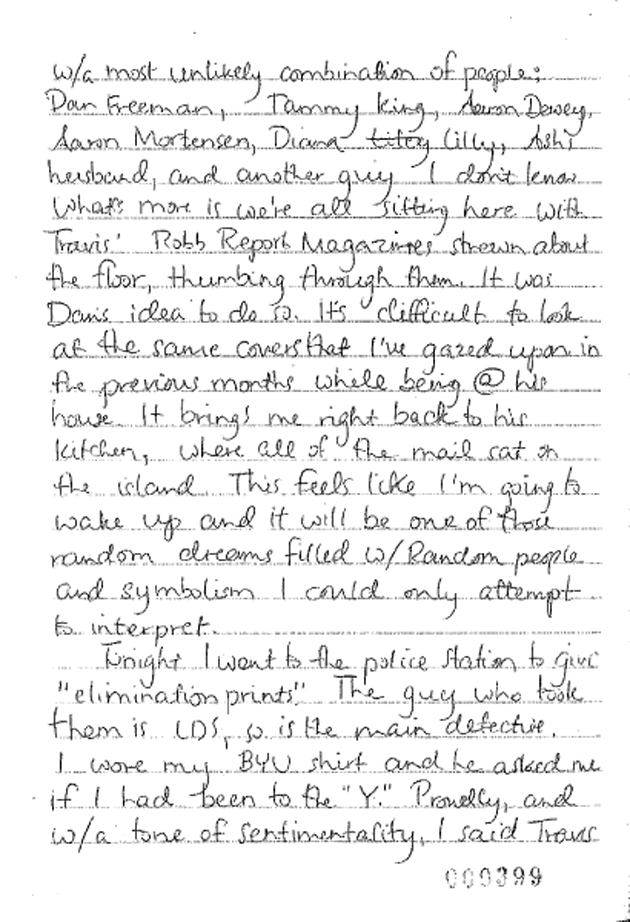 w/a most unlikely combination of people:
Dan Freeman, Tammy King, Aaron Dewey,
Aaron Mortensen, Diana Lilly, Ash's
husband, and another guy I don't know
What's more is we're all sitting here with
Travis' Robb Report Magazines strewn about
the floor, thumbing through them. It was
Dan's idea to do so. It's difficult to look
at the same covers that I've gazed upon in
the previous months while being @ his
house. It brings me right back to his
kitchen, where all of the mail sat on
the island. This feels like I'm going to
wake up and it will be one of those
random dreams filled w/Random people
and symbolism I could only attempt
to interpret.
Tonight I went to the police station to give
"elimination prints." The guy who took
them is LDS, so is the main detective.
I wore my BYU shirt and he asked me
if I had been to the "Y." Proudly, and
w/a tone of sentimentality, I said Travis
000399